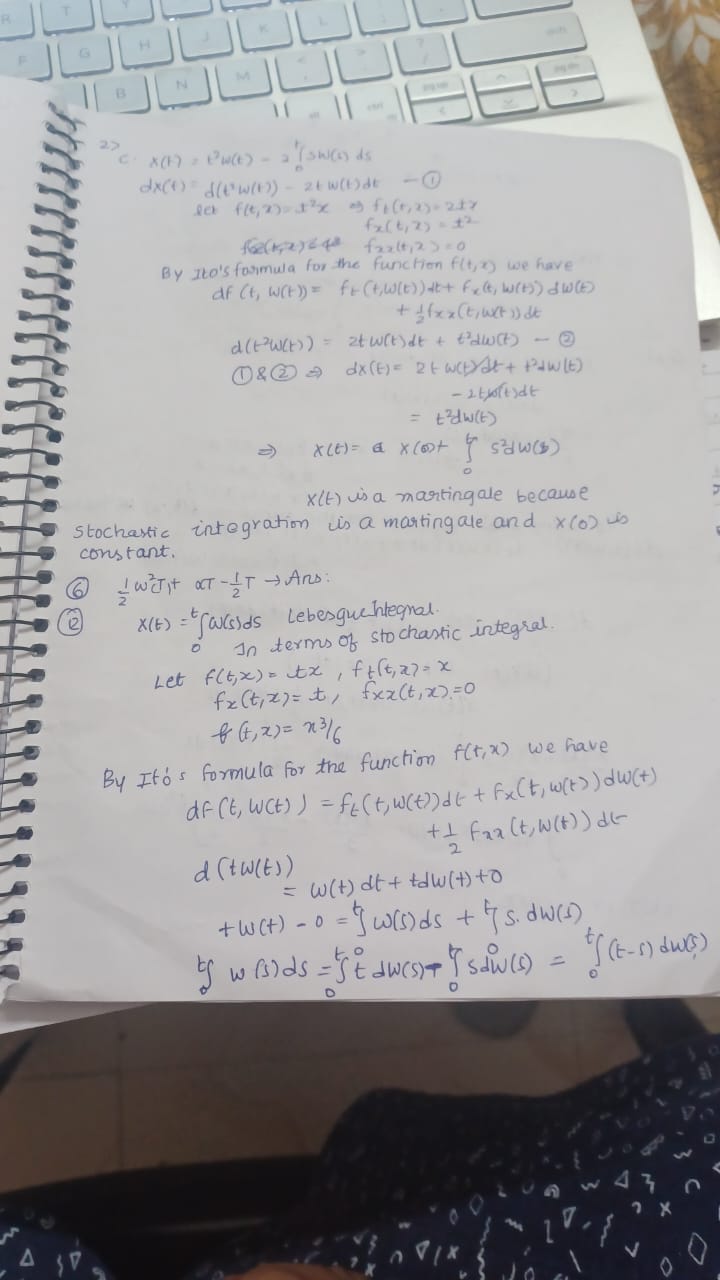 R T Y U I O P
F G H J K L
B N M
2>
C. X(t) = t²W(t) - 2 ∫₀ᵗ sW(s) ds
dX(t) = d(t²W(t)) - 2t W(t)dt — ①
let f(t,x) = t²x ⇒ fₜ(t,x) = 2tx
fₓ(t,x) = t²
fₓₓ(t,x) = 0
By Ito's formula for the function f(t,x) we have
df (t, W(t)) = fₜ(t,W(t))dt + fₓ(t, W(t)) dW(t)
+ ½fₓₓ(t,W(t))dt
d(t²W(t)) = 2t W(t)dt + t²dW(t) — ②
① & ② ⇒ dX(t) = 2t W(t)dt + t²dW(t)
- 2tW(t)dt
= t²dW(t)
⇒ X(t) = X(0)+ ∫₀ᵗ s²dW(s)
X(t) is a martingale because
stochastic integration is a martingale and X(0) is
constant.
⑥ ½ W²(T)+ αT - ½T → Ans:
⑫ X(t) = ∫₀ᵗ W(s)ds Lebesgue Integral.
In terms of stochastic integral.
Let f(t,x) = tx , fₜ(t,x) = x
fₓ(t,x) = t, fₓₓ(t,x) = 0
f(t,x) = x³/6
By Itó's formula for the function f(t,x) we have
df (t, W(t)) = fₜ(t,W(t))dt + fₓ(t, W(t)) dW(t)
+ ½ fₓₓ(t, W(t)) dt
d (tW(t))
= W(t) dt + tdW(t) + 0
tW(t) - 0 = ∫₀ᵗ W(s)ds + ∫₀ᵗ s. dW(s)
∫₀ᵗ W(s)ds = ∫₀ᵗ t dW(s) - ∫₀ᵗ sdW(s) = ∫₀ᵗ (t-s) dW(s)